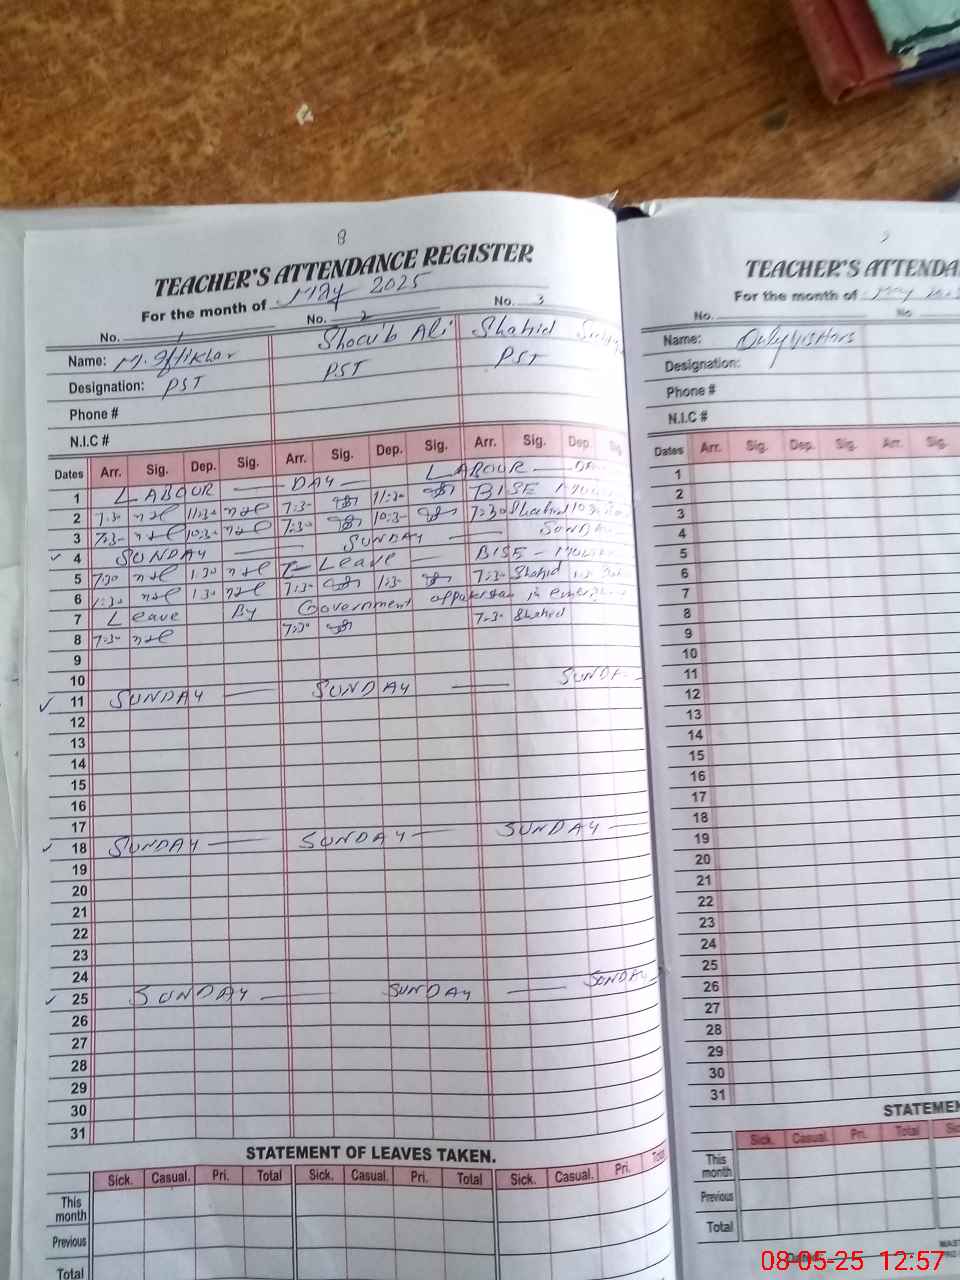 8
TEACHER'S ATTENDANCE REGISTER
For the month of May 2025
No. 1 No. 2 No. 3
Name: M. Iftikhar Shoaib Ali Shahid
Designation: PST PST PST
Phone #
N.I.C #
Dates Arr. Sig. Dep. Sig. Arr. Sig. Dep. Sig. Arr. Sig. Dep. Sig.
1 LABOUR DAY LABOUR DA
2 7:3- 11:3- 7:3- 11:3- BISE
3 7:3- 10:3- 7:3- 10:3- 7:30 Shahid 10:3-
4 SUNDAY SUNDAY SUNDAY
5 7:30 1:30 Leave BISE -
6 1:3- 7:3- 1:3- 7:3- Shahid
7 Leave By Government
8 7:3- 7:30 7:3- Shahid
9
10
11 SUNDAY SUNDAY SUNDA
12
13
14
15
16
17
18 SUNDAY SUNDAY SUNDAY
19
20
21
22
23
24
25 SUNDAY SUNDAY SUNDAY
26
27
28
29
30
31
STATEMENT OF LEAVES TAKEN.
Sick. Casual. Pri. Total Sick. Casual. Pri. Total Sick. Casual. Pri. Total
This month
Previous
Total
9
TEACHER'S ATTENDA
For the month of May 2025
No. No
Name: Only visitors
Designation:
Phone #
N.I.C #
Dates Arr. Sig. Dep. Sig. Arr. Sig.
1
2
3
4
5
6
7
8
9
10
11
12
13
14
15
16
17
18
19
20
21
22
23
24
25
26
27
28
29
30
31
STATEMEN
Sick. Casual. Pri. Total Sic
This month
Previous
Total
Dated:
08-05-25 12:57